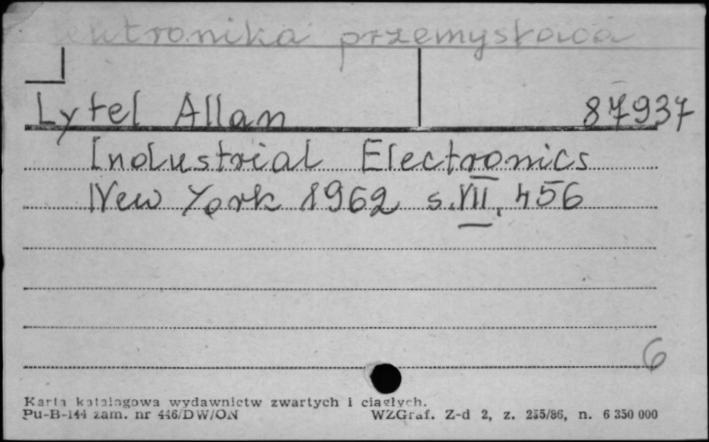 elektronika przemysłowa
Lytel Allan 87937
Industrial Electronics
New York 1962 s. VII, 456
6
Karta katalogowa wydawnictw zwartych i ciągłych.
Pu-B-144 zam. nr 446/DW/ON WZGraf. Z-d 2, z. 255/86, n. 6 350 000